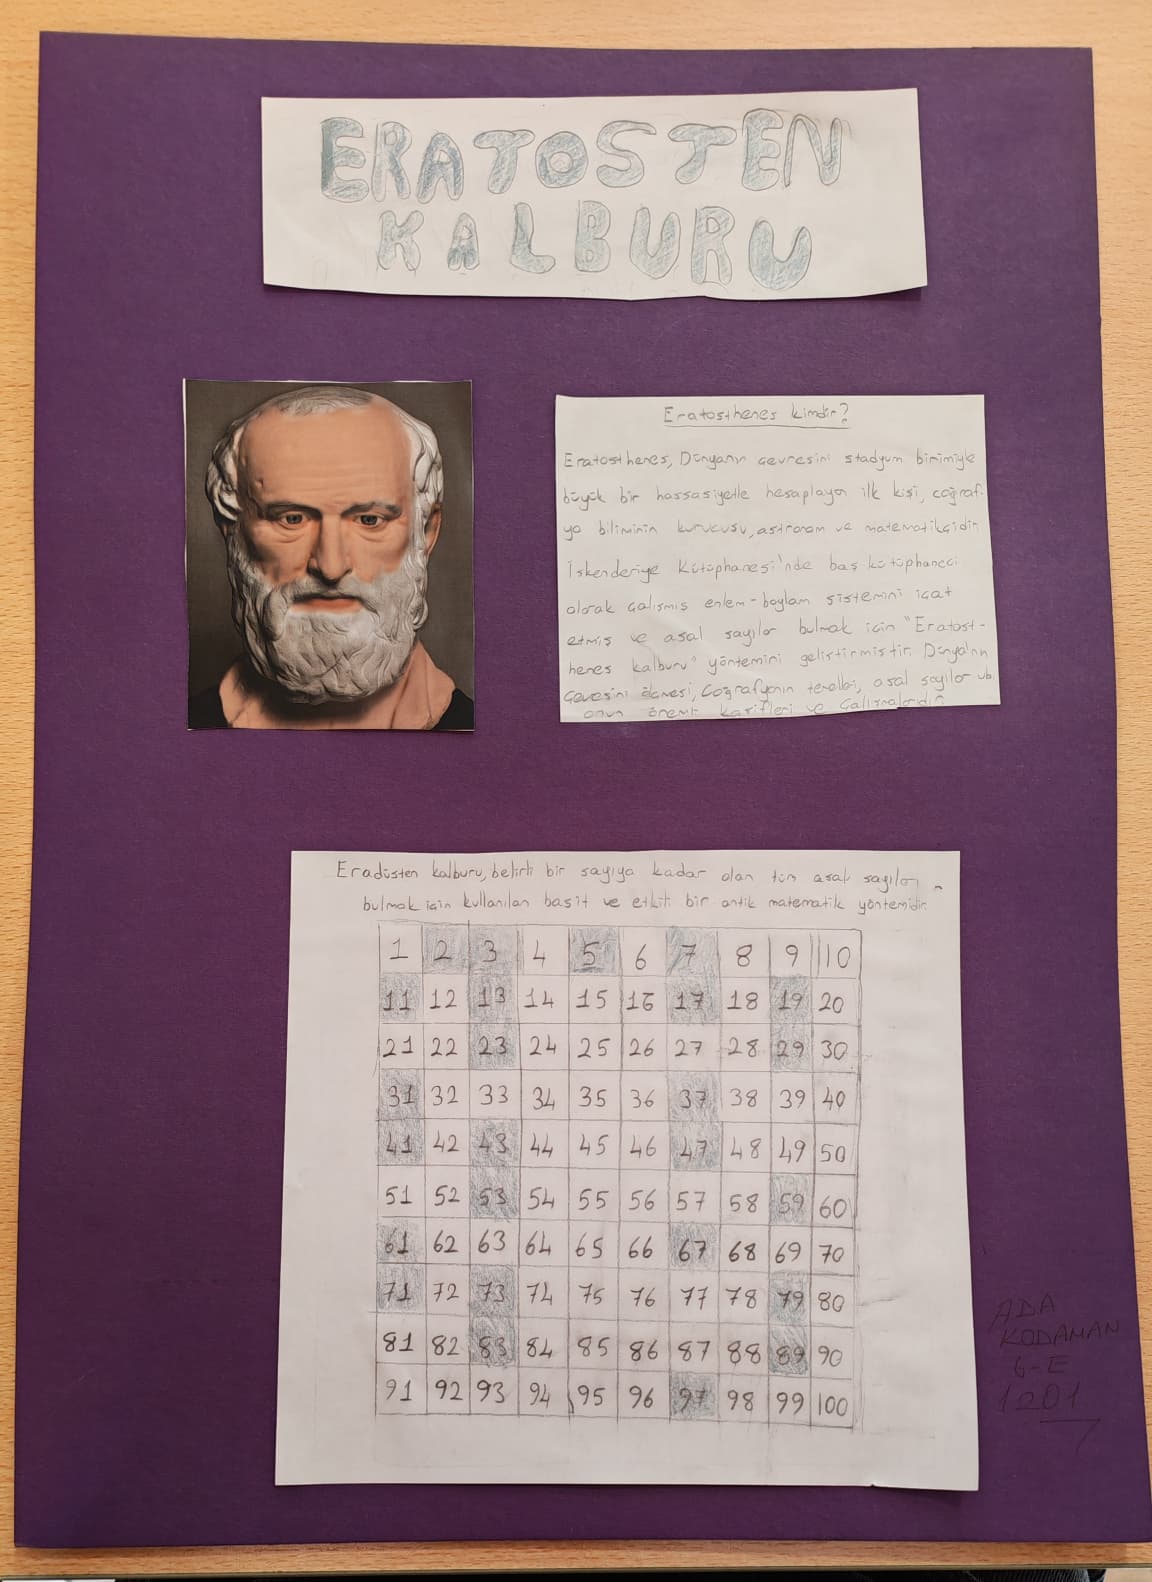 ERATOSTEN
KALBURU
Eratosthenes kimdir?
Eratosthenes, Dünyanın çevresini stadyum birimiyle
büyük bir hassasiyetle hesaplayan ilk kişi, coğraf-
ya biliminin kurucusu, astronom ve matematikçidir.
İskenderiye Kütüphanesi'nde baş kütüphaneci
olarak çalışmış enlem-boylam sistemini icat
etmiş ve asal sayılar bulmak için "Eratost-
henes kalburu" yöntemini geliştirmiştir. Dünya'nın
çevresini ölçmesi, Coğrafyanın temelleri, asal sayılar vb.
onun önemli kaşifleri ve çalışmalarıdır.
Eradüsten kalburu, belirli bir sayıya kadar olan tüm asal sayıları
bulmak için kullanılan basit ve etkili bir antik matematik yöntemidir.
1 2 3 4 5 6 7 8 9 10
11 12 13 14 15 16 17 18 19 20
21 22 23 24 25 26 27 28 29 30
31 32 33 34 35 36 37 38 39 40
41 42 43 44 45 46 47 48 49 50
51 52 53 54 55 56 57 58 59 60
61 62 63 64 65 66 67 68 69 70
71 72 73 74 75 76 77 78 79 80
81 82 83 84 85 86 87 88 89 90
91 92 93 94 95 96 97 98 99 100
ADA
KODAMAN
6-E
1201